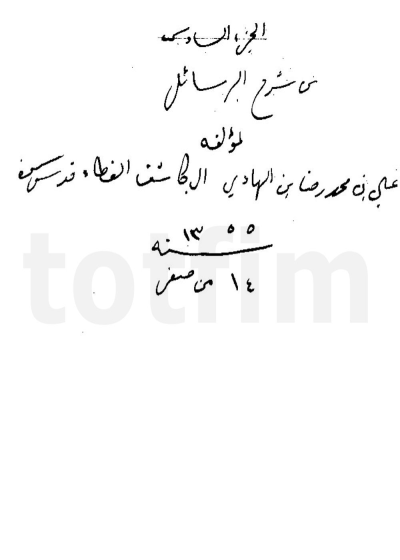 الجزء السادس
من شرح الرسائل
لمؤلفه
علي بن محمد رضا بن الهادي ال كاشف الغطاء قدس سره
سنة ١٣٥٥
١٤ من صفر
totfim